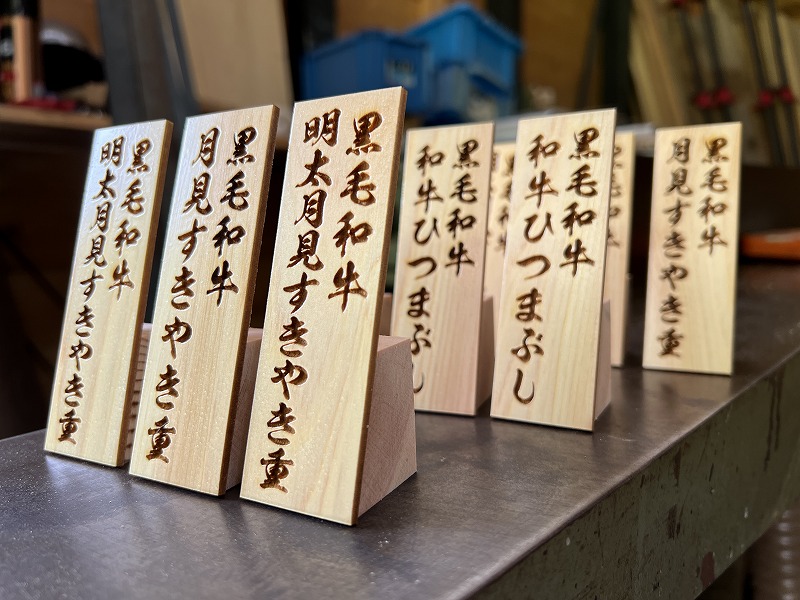 黒毛和牛
明太月見すきやき重
黒毛和牛
月見すきやき重
黒毛和牛
明太月見すきやき重
黒毛和牛
和牛ひつまぶし
黒毛和牛
和牛ひつまぶし
黒毛和牛
月見すきやき重